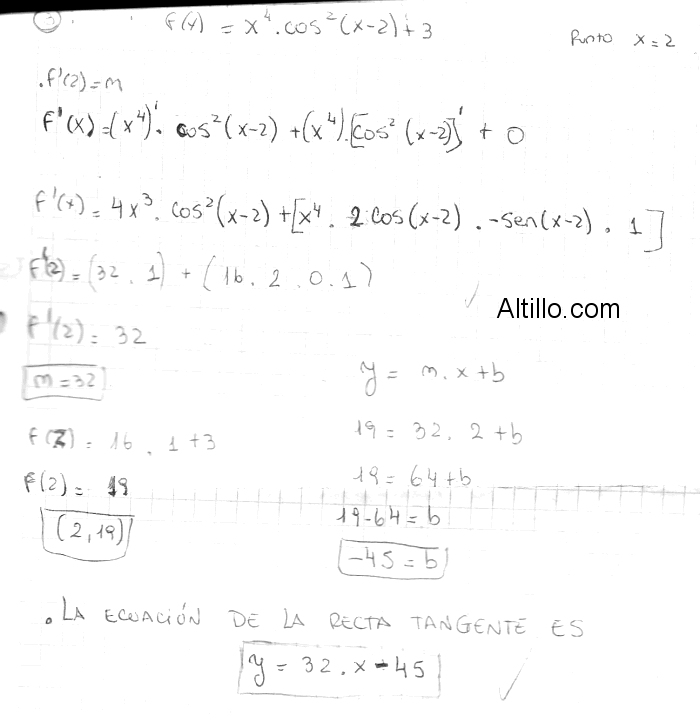 3)
f(x) = x⁴.cos²(x-2)+3
Punto x=2
.f'(2)=m
f'(x)=(x⁴)'. cos²(x-2) +(x⁴).[cos²(x-2)]' + 0
f'(x)= 4x³. cos²(x-2)+[x⁴. 2cos(x-2) . -sen(x-2) . 1]
f'(2)= (32 . 1) + (16. 2. 0. 1)
Altillo.com
f'(2)= 32
m=32
f(2)= 16 . 1+3
f(2)= 19
(2,19)
y = m.x+b
19 = 32. 2+b
19= 64+b
19-64=b
-45=b
. LA ECUACIÓN DE LA RECTA TANGENTE ES
y = 32.x-45